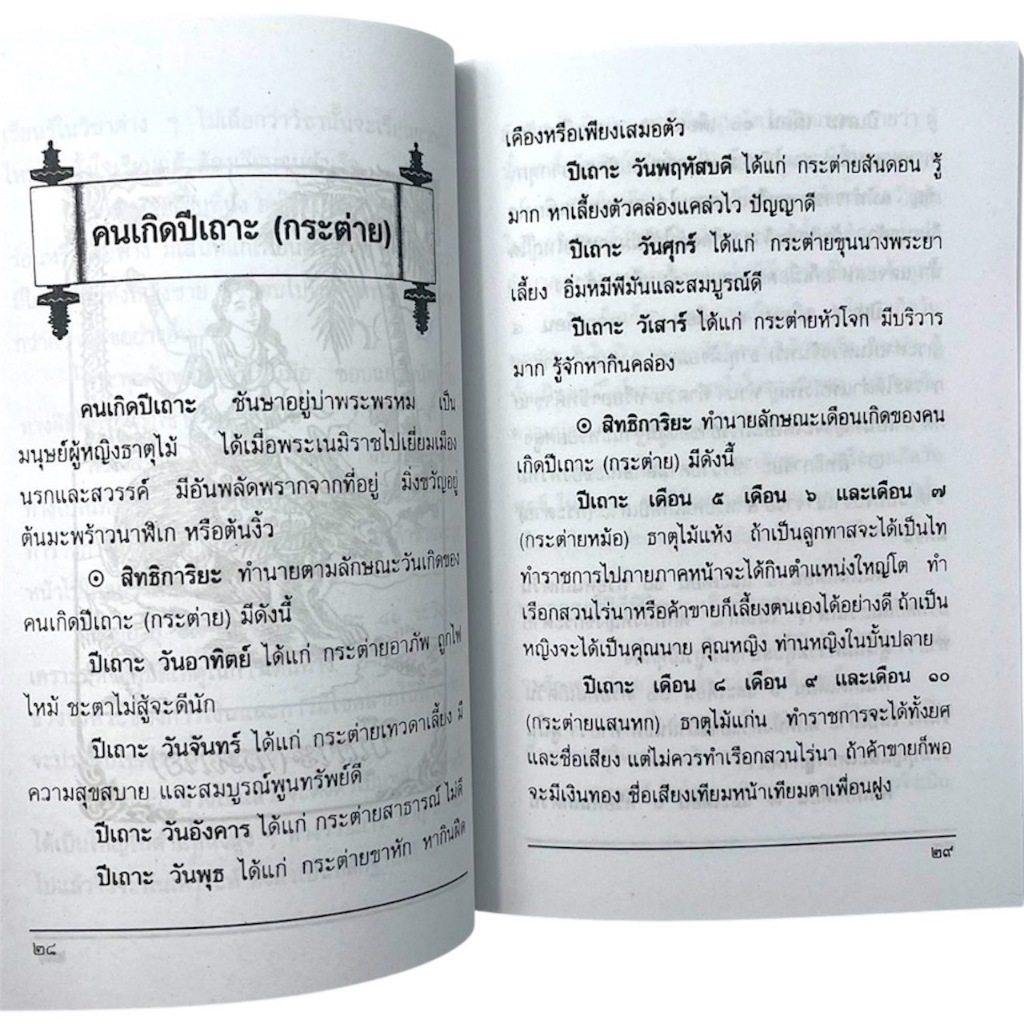 คนเกิดปีเถาะ (กระต่าย)
คนเกิดปีเถาะ ชันษาอยู่บ่าพระพรหม เป็น
มนุษย์ผู้หญิงธาตุไม้ ได้เมื่อพระเนมิราชไปเยี่ยมเมือง
นรกและสวรรค์ มีอันพลัดพรากจากที่อยู่ มิ่งขวัญอยู่
ต้นมะพร้าวนาฬิเก หรือต้นงิ้ว
⊙ สิทธิการิยะ ทำนายตามลักษณะวันเกิดของ
คนเกิดปีเถาะ (กระต่าย) มีดังนี้
ปีเถาะ วันอาทิตย์ ได้แก่ กระต่ายอาภัพ ถูกไฟ
ไหม้ ชะตาไม่สู้จะดีนัก
ปีเถาะ วันจันทร์ ได้แก่ กระต่ายเทวดาเลี้ยง มี
ความสุขสบาย และสมบูรณ์พูนทรัพย์ดี
ปีเถาะ วันอังคาร ได้แก่ กระต่ายสาธารณ์ ไม่ดี
ปีเถาะ วันพุธ ได้แก่ กระต่ายขาหัก หากินฝืด
๒๘
เคืองหรือเพียงเสมอตัว
ปีเถาะ วันพฤหัสบดี ได้แก่ กระต่ายสันดอน รู้
มาก หาเลี้ยงตัวคล่องแคล่วไว ปัญญาดี
ปีเถาะ วันศุกร์ ได้แก่ กระต่ายขุนนางพระยา
เลี้ยง อิ่มหมีพีมันและสมบูรณ์ดี
ปีเถาะ วันเสาร์ ได้แก่ กระต่ายหัวโจก มีบริวาร
มาก รู้จักหากินคล่อง
⊙ สิทธิการิยะ ทำนายลักษณะเดือนเกิดของคน
เกิดปีเถาะ (กระต่าย) มีดังนี้
ปีเถาะ เดือน ๕ เดือน ๖ และเดือน ๗
(กระต่ายหม้อ) ธาตุไม้แห้ง ถ้าเป็นลูกทาสจะได้เป็นไท
ทำราชการไปภายภาคหน้าจะได้กินตำแหน่งใหญ่โต ทำ
เรือกสวนไร่นาหรือค้าขายก็เลี้ยงตนเองได้อย่างดี ถ้าเป็น
หญิงจะได้เป็นคุณนาย คุณหญิง ท่านหญิงในบั้นปลาย
ปีเถาะ เดือน ๘ เดือน ๙ และเดือน ๑๐
(กระต่ายแสนหก) ธาตุไม้แก่น ทำราชการจะได้ทั้งยศ
และชื่อเสียง แต่ไม่ควรทำเรือกสวนไร่นา ถ้าค้าขายก็พอ
จะมีเงินทอง ชื่อเสียงเทียมหน้าเทียมตาเพื่อนฝูง
๒๙